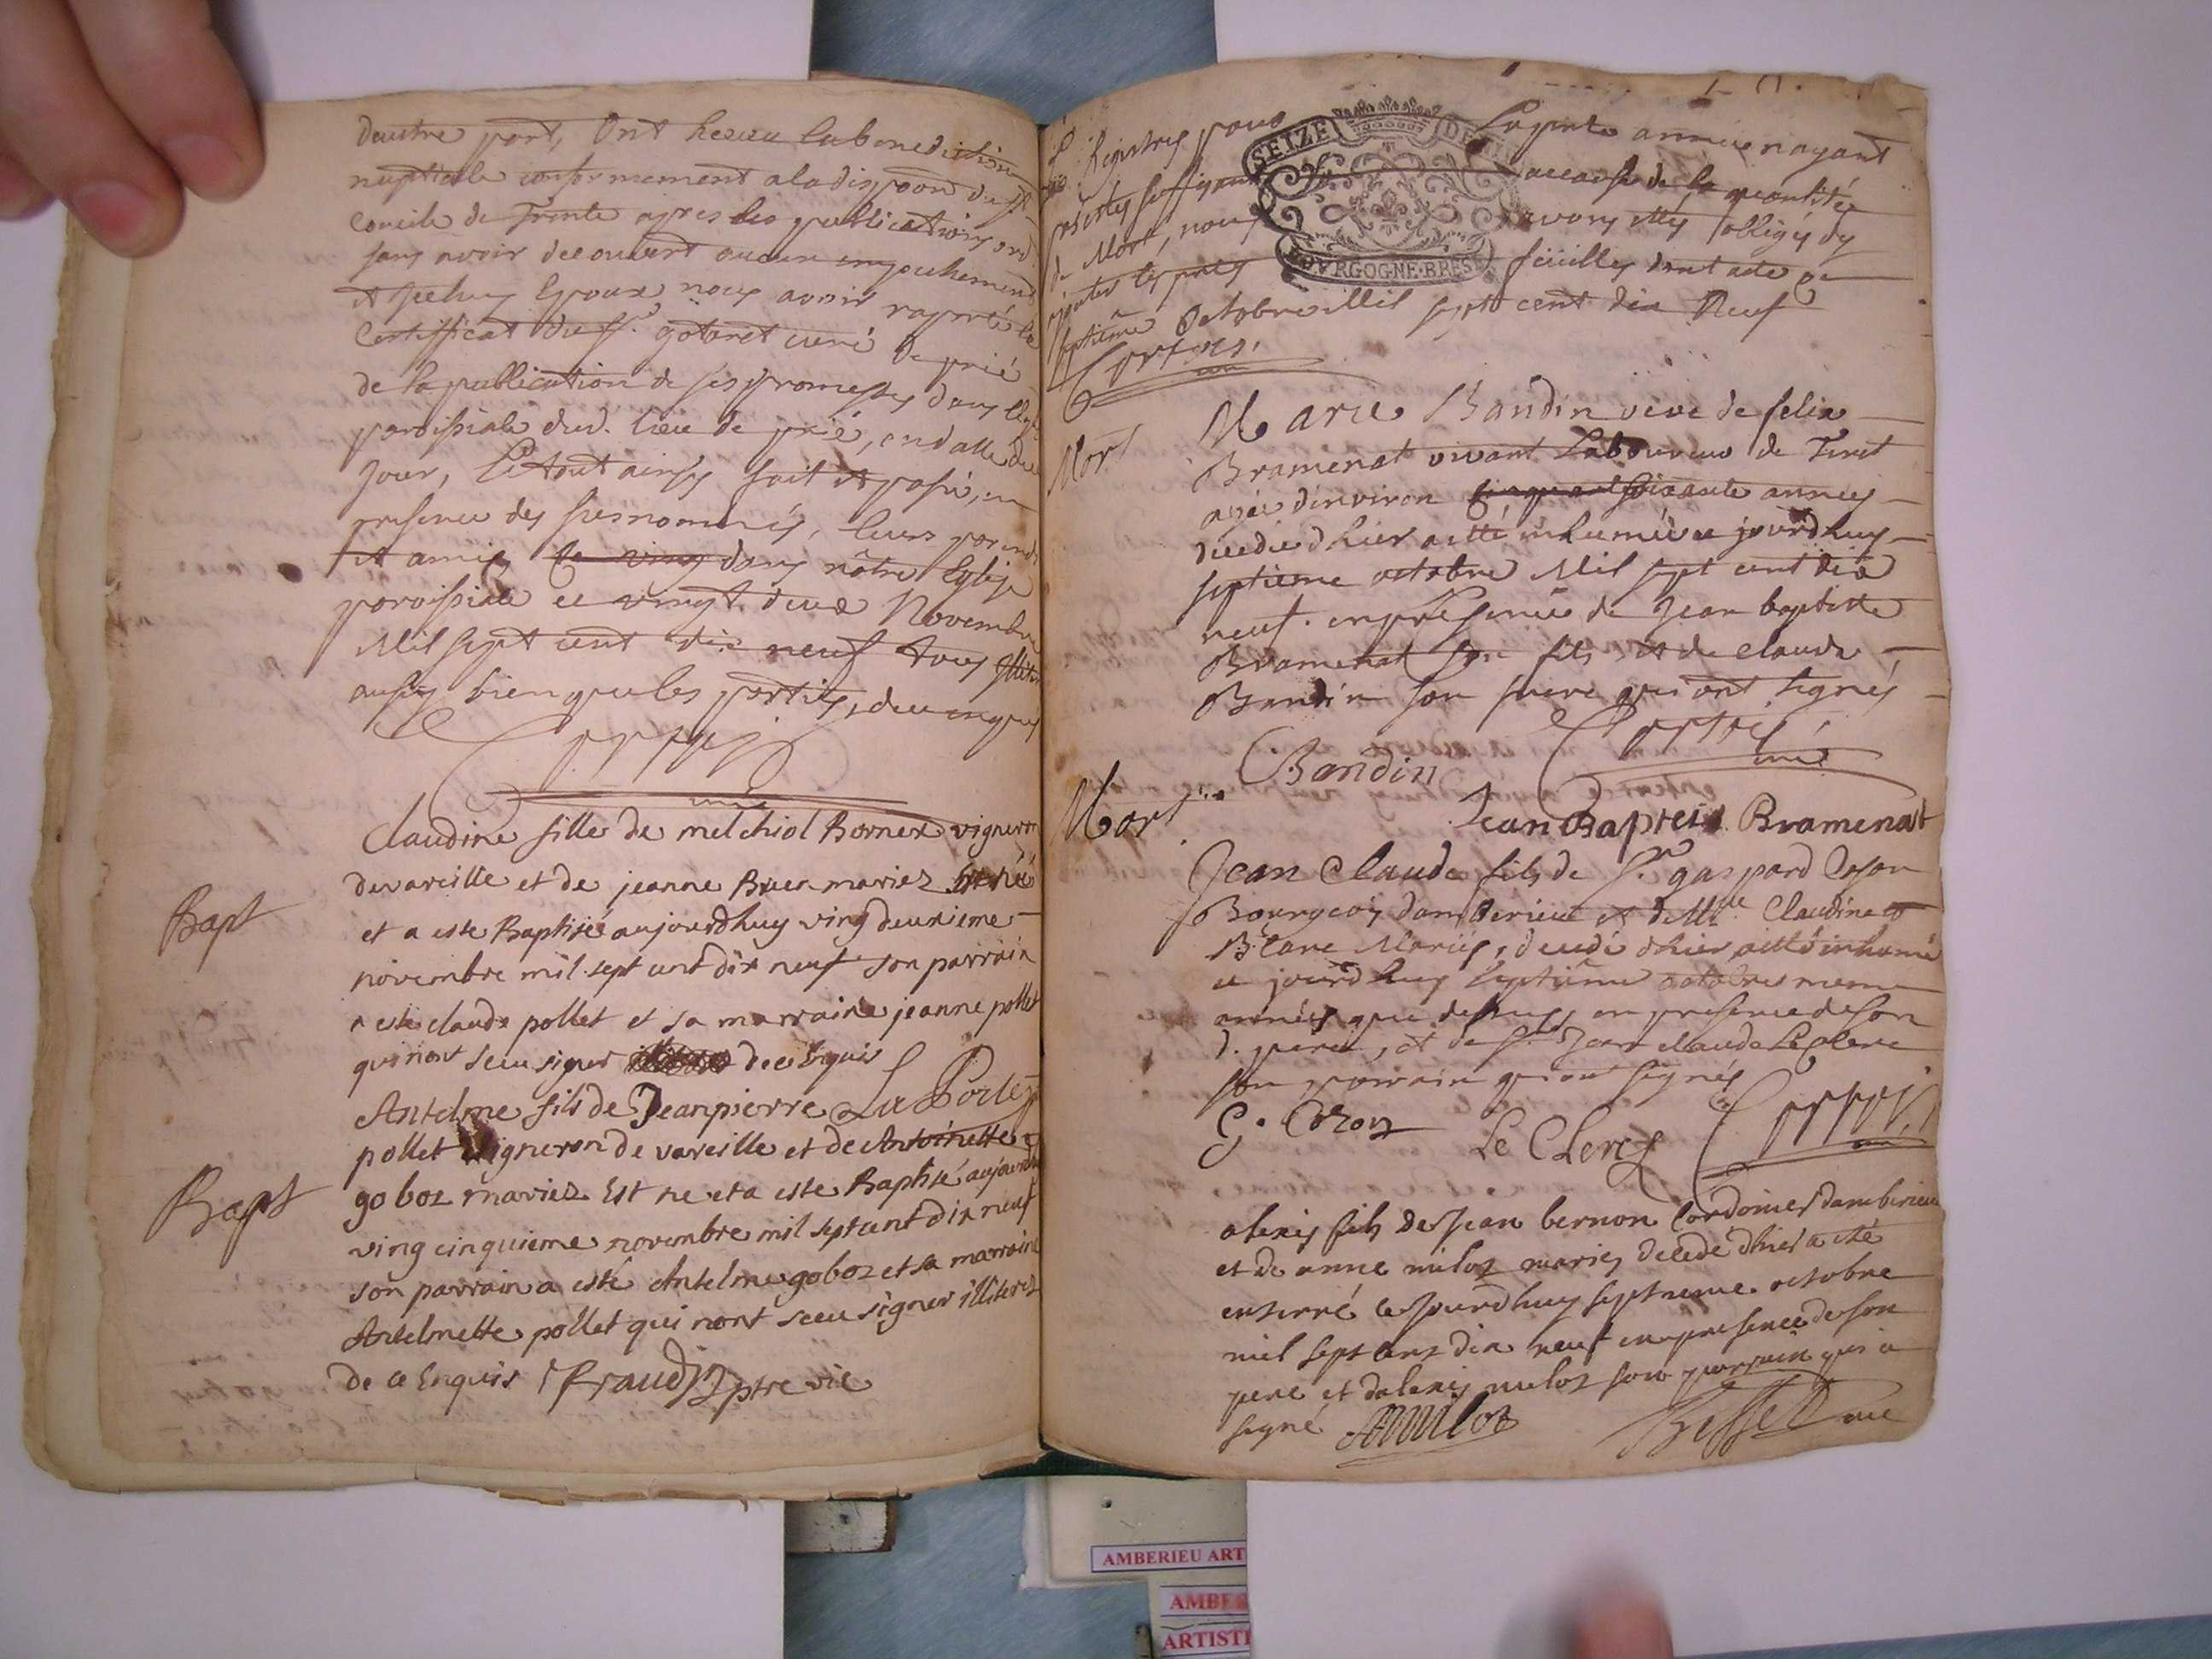 dautre part, Ont receu la benediction
nuptiale conformement a la dispoon du St
Concile de Trente apres les publications ord
sans avoir decouvert aucun empechement
et epoux nous avoir raporté le
Certifficat du Sr gotaret curé de prié
de la publication de ses promesses dans
paroissiale dud. lieu de prié, en datte du
jour, le tout ainsy fait et passé, en
presence des susnommés, leurs parents
et amis dans nôtre Eglise
paroissiale ce vingt deux Novembre
Mil sept cent dix neuf tous
aussy bien que les parties, de ce enquis
curé
Bapt
Claudine fille de melchiol Borner vigneron
devareille et de jeanne Brun mariez est née
et a este Baptisé aujourdhuy ving deuxieme
novembre mil sept cent dix neuf son parrain
a esté claude pollet et sa marraine jeanne pollet
qui nont sceu signer de ce Enquis
Bapt
Antelme fils de Jeanpierre
pollet vigneron de vareille et de Antoinette
goboz mariez Est ne et a este Baptisé aujourdhuy
ving cinquieme novembre mil sept cent dix neuf
son parrain a esté Antelme goboz et sa marraine
Antelmette pollet qui nont sceu signer illiterez
de ce Enquis ptre vic
SEIZE DE
BOVRGOGNE·BRES
Registres pour la pnte année nayant
estés suffisants acause de la quantité
de Mort, nous avons estés obligés dy
ajouter les pntes feüilles dont acte ce
septième Octobre Mil sept cent dix Neuf
Mort
Marie Bandin veve de felix
Bramenat vivant Laboureur de Tiret
agée d'environ soixante années
decedée dhier a esté inhumée ce jourdhuy
septieme octobre Mil sept cent dix
neuf. en presence de Jean baptiste
Bramenat son fils et de Claude
Bandin son frere qui ont signés
curé
Bandin
Jean Bapteist Bramenat
Mort
Jean Claude fils de Sr gaspard Cozon
Bourgeois damberieu et de Mlle Claudine
Blanc Mariés, decedé dhier a esté inhumé
ce jourdhuy septième octobre meme
année que dessus, en presence de son
d. pere, et de Sr Jean claude Leclerc
son parrain qui ont signés
G. Cozon
Le Clerc
alexis fils de Jean bernon Cordonier damberieu
et de anne miloz mariez decedé dhier a esté
enterré ce Jourdhuy septieme octobre
mil sept cent dix neuf en presence de son
pere et dalexis miloz son parrain qui a
signé AMiloz